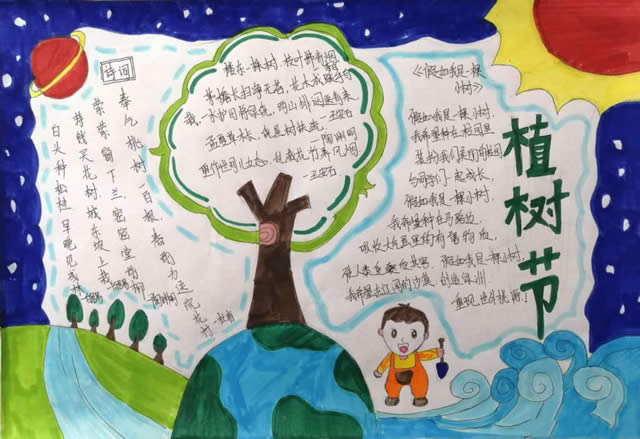 植树节
诗词
奉乞桃树一百根 春前为送浣花村 —杜甫
荣荣窗下兰,密密堂前柳
持钱买花树,城东坡上栽
白头种松桂 早晚见成林
楼东一株树,枝叶拂青烟
茅檐长扫净无苔,花木成畦手自
栽,一水护田将绿绕,两山排闼送青来.
—王安石
孟夏草木长,绕屋树扶疏
—陶渊明
更作世间儿女态,乱栽花竹养风烟
—王安石
《假如我是一棵
小树》
假如我是一棵小树,
我希望种在校园里
装扮我们美丽的校园
与同学们一起成长
假如我是一棵小树,
我希望种在马路边,
吸收大气里的有害物质,
使人类免受危害,假如我是一棵小树,
我希望去辽阔的沙漠,创造绿洲
重现世外桃源!